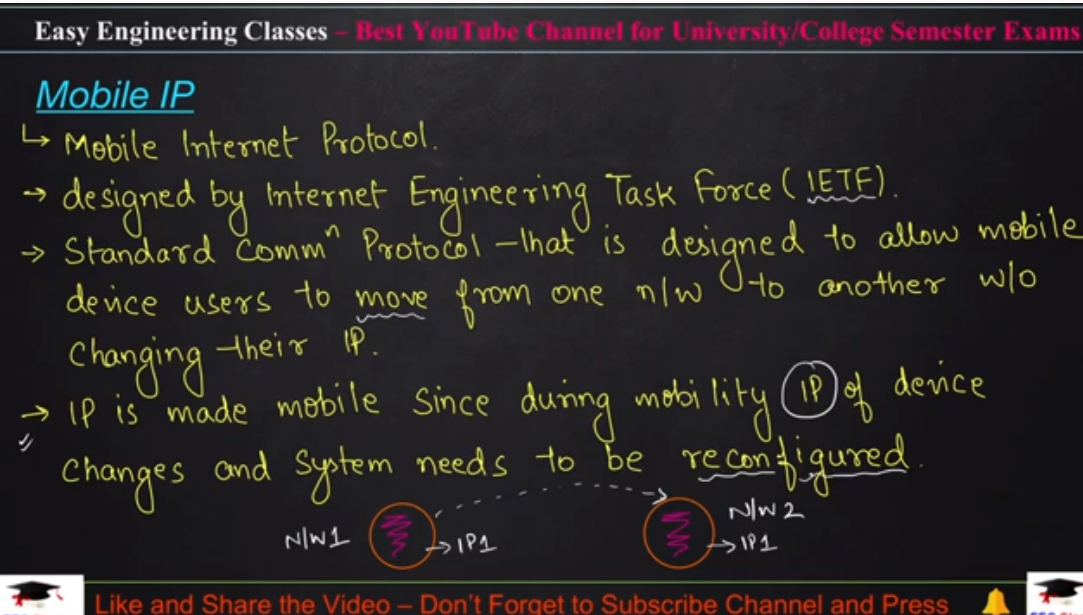 Easy Engineering Classes – Best YouTube Channel for University/College Semester Exams
Mobile IP
↳ Mobile Internet Protocol.
→ designed by Internet Engineering Task Force (IETF).
→ Standard Commⁿ Protocol that is designed to allow mobile
device users to move from one n/w to another w/o
changing their IP.
→ IP is made mobile since during mobility IP of device
changes and system needs to be reconfigured.
N/W1 →IP1 N/W2 →IP1
Like and Share the Video – Don't Forget to Subscribe Channel and Press